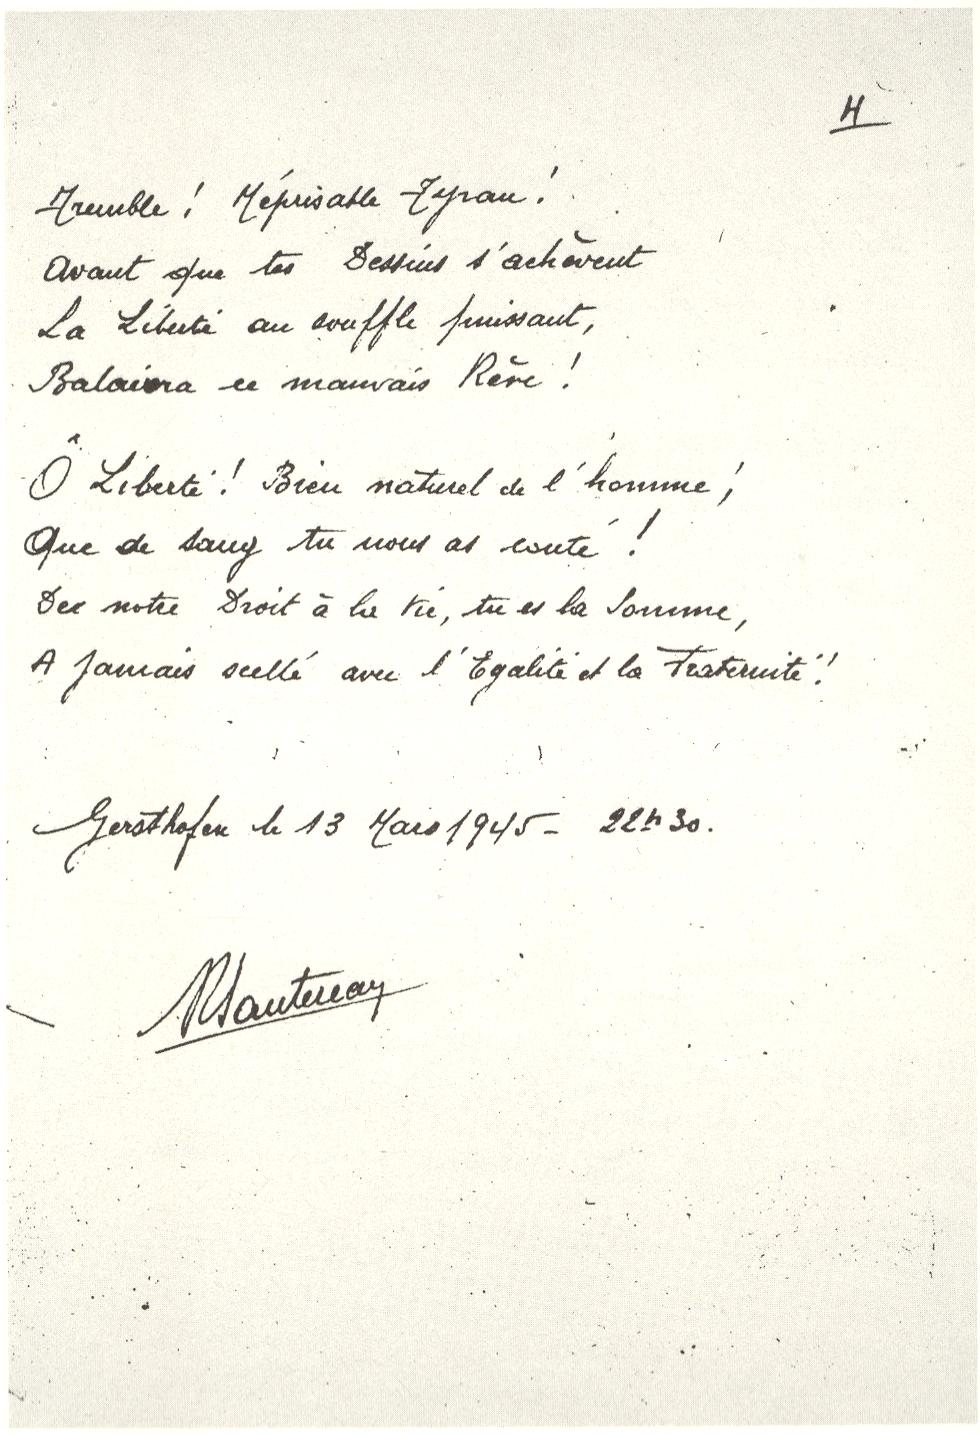 4
Tremble ! Méprisable Tyran !
Avant que tes Dessins s'achèvent
La Liberté au souffle puissant,
Balaiera ce mauvais Rêve !
Ô Liberté ! Bien naturel de l'homme ,!
Que de sang tu nous as couté !
De notre Droit à la Vie, tu es la Somme,
A Jamais scellé avec l'Egalité et la Fraternité !
Gersthofen le 13 Mars 1945 - 22h30.